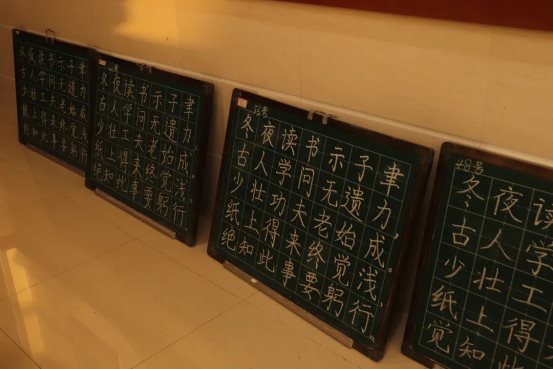 冬夜读书示子聿
古人学问无遗力
少壮工夫老始成
纸上得来终觉浅
绝知此事要躬行
冬夜读书示子聿
古人学问无遗力
少壮工夫老始成。
纸上得来终觉浅,
绝知此事要躬行
冬夜读书示子聿
古人学问无遗力,
少壮功夫老始成。
纸上得来终觉浅,
绝知此事要躬行
冬夜读
古人学
少壮工
纸上得
觉知